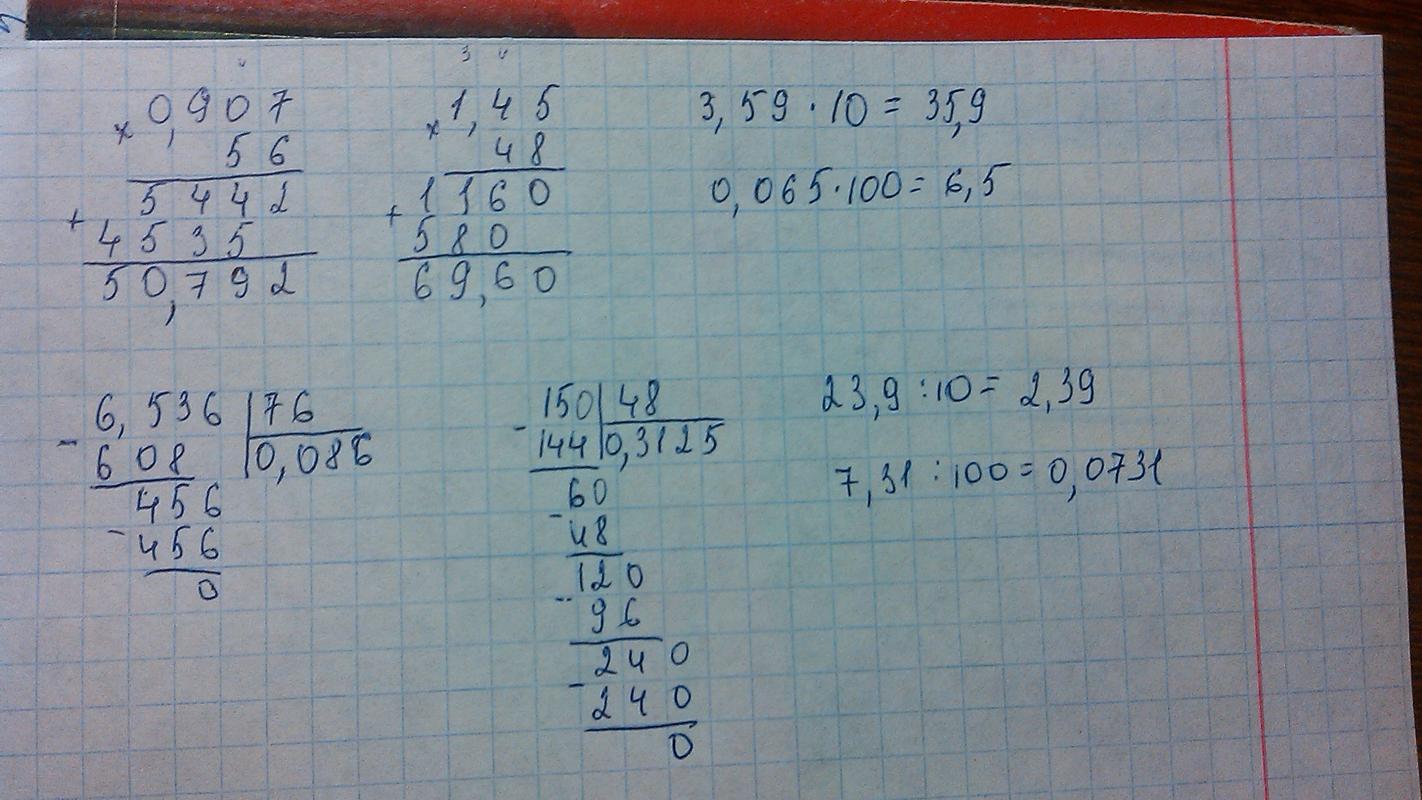 0,907
× 56
5442
+ 4535
50,792
1,45
× 48
1160
+ 580
69,60
3,59 · 10 = 35,9
0,065 · 100 = 6,5
- 6,536 | 76
608 | 0,086
456
- 456
0
- 150 | 48
144 | 0,3125
60
- 48
120
- 96
240
- 240
0
23,9 : 10 = 2,39
7,31 : 100 = 0,0731